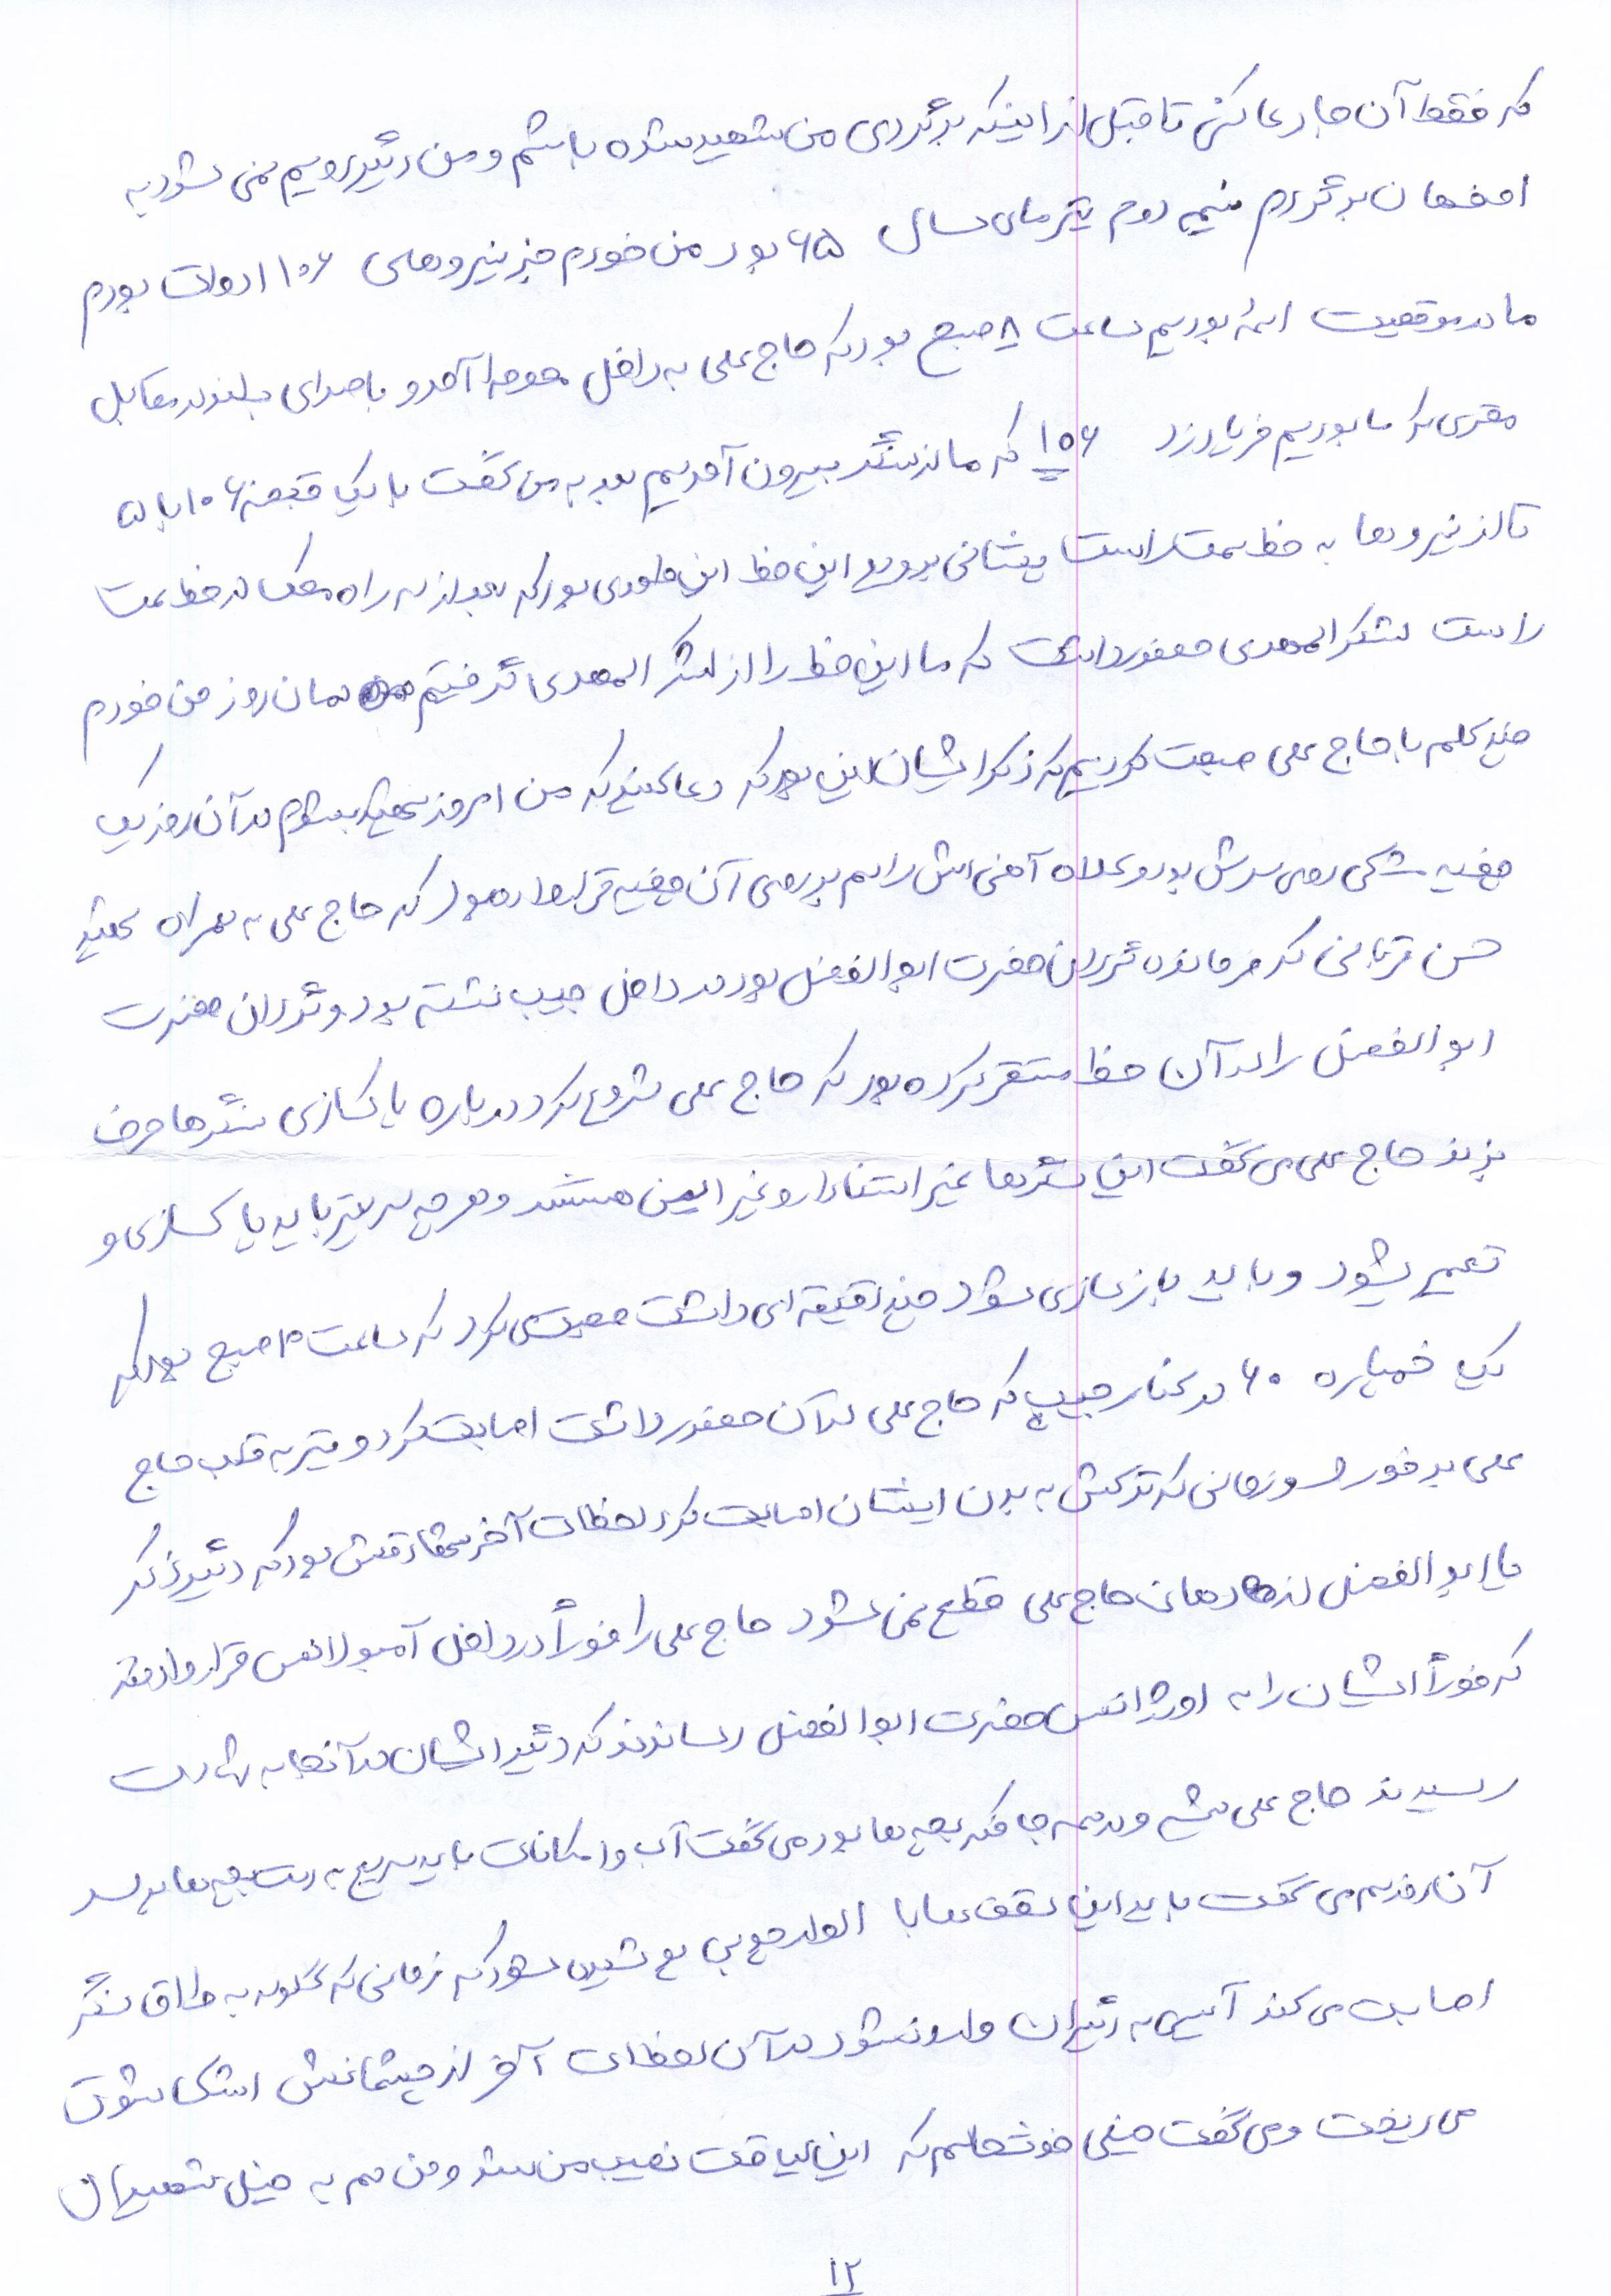 که فقط آن جا دعا کنی تا قبل از اینکه برگردی من شهید شده باشم و من دیگر رویم نمی شود به
اصفهان برگردم نیمه دوم تیرماه سال ۶۵ بود من خودم جزء نیروهای ۱۰۶ ادوات بودم
ما در موقعیت ائمه بودیم ساعت ۸ صبح بود که حاج علی به داخل محوطه آمد و با صدای بلند در مقابل
مقری که ما بودیم فریاد زد ۱۰۶ که ما از سنگر بیرون آمدیم بعد به من گفت با یک قبضه ۱۰۶ با ۵
تا از نیروها به خط سمت راست پیشانی بروید این خط این طوری بود که بعد از سه راه در خط سمت
راست لشکر المهدی حضور داشت که ما این خط را از لشکر المهدی گرفتیم همان روز من خودم
چند کلمه با حاج علی صحبت کردیم که ذکر ایشان این بود که دعا کنید که من امروز شهید بشوم در آن روز یک
چفیه مشکی روی سرش بود و کلاه آهنی اش را هم بر روی آن چفیه قرار داده بود که حاج علی به همراه شهید
حسن قربانی که فرمانده گردان حضرت ابوالفضل بود در داخل جیپ نشسته بود و گردان حضرت
ابوالفضل را در آن خط مستقر کرده بود که حاج علی شروع کرد درباره پاکسازی سنگرها حرف
بزند حاج علی می گفت این سنگرها غیر استاندارد و غیر ایمن هستند و هر چه سریعتر باید پاکسازی و
تعمیر بشود و باید بازسازی بشود چند دقیقه ای داشت صحبت می کرد که ساعت ۱۰ صبح بود که
یک خمپاره ۶۰ در کنار جیپ که حاج علی در آن حضور داشت اصابت کرد و تیر به قلب حاج
علی برخورد و زمانی که ترکش به بدن ایشان اصابت کرد لحظات آخر شهادتش بود که دیگر ذکر
یا ابوالفضل از دهان حاج علی قطع نمی شود حاج علی را فوراً در داخل آمبولانس قرار دادند
که فوراً ایشان را به اورژانس حضرت ابوالفضل رساندند که دیگر ایشان در آنجا به شهادت
رسیدند حاج علی همیشه و در همه جا فکر بچه ها بود می گفت آب و امکانات باید سریع به دست بچه ها برسد
آن روز هم می گفت باید این سقف ها با الوار چوبی پوشیده شود که زمانی که گلوله به طاق سنگر
اصابت می کند آسیبی به دیگران وارد نشود در آن لحظات آخر از چشمانش اشک شوق
می ریخت و می گفت خیلی خوشحالم که این لیاقت نصیب من شد و من هم به خیل شهیدان
۱۲